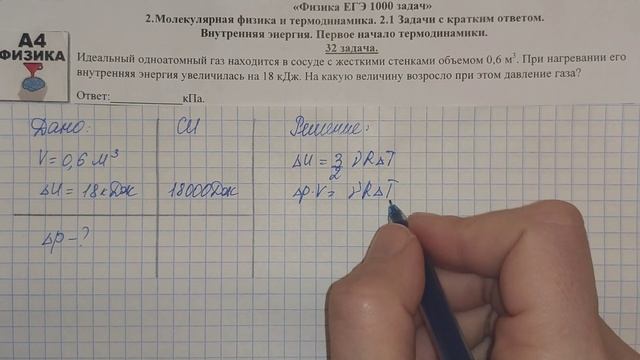 «Физика ЕГЭ 1000 задач»
2.Молекулярная физика и термодинамика. 2.1 Задачи с кратким ответом.
Внутренняя энергия. Первое начало термодинамики.
32 задача.
А4
ФИЗИКА
Идеальный одноатомный газ находится в сосуде с жесткими стенками объемом 0,6 м³. При нагревании его
внутренняя энергия увеличилась на 18 кДж. На какую величину возросло при этом давление газа?
Ответ:____________кПа.
Дано: СИ Решение:
V = 0,6 м³ ΔU = 3/2 νRΔT
ΔU = 18 кДж 18000Дж Δp·V = νRΔT
Δp - ?